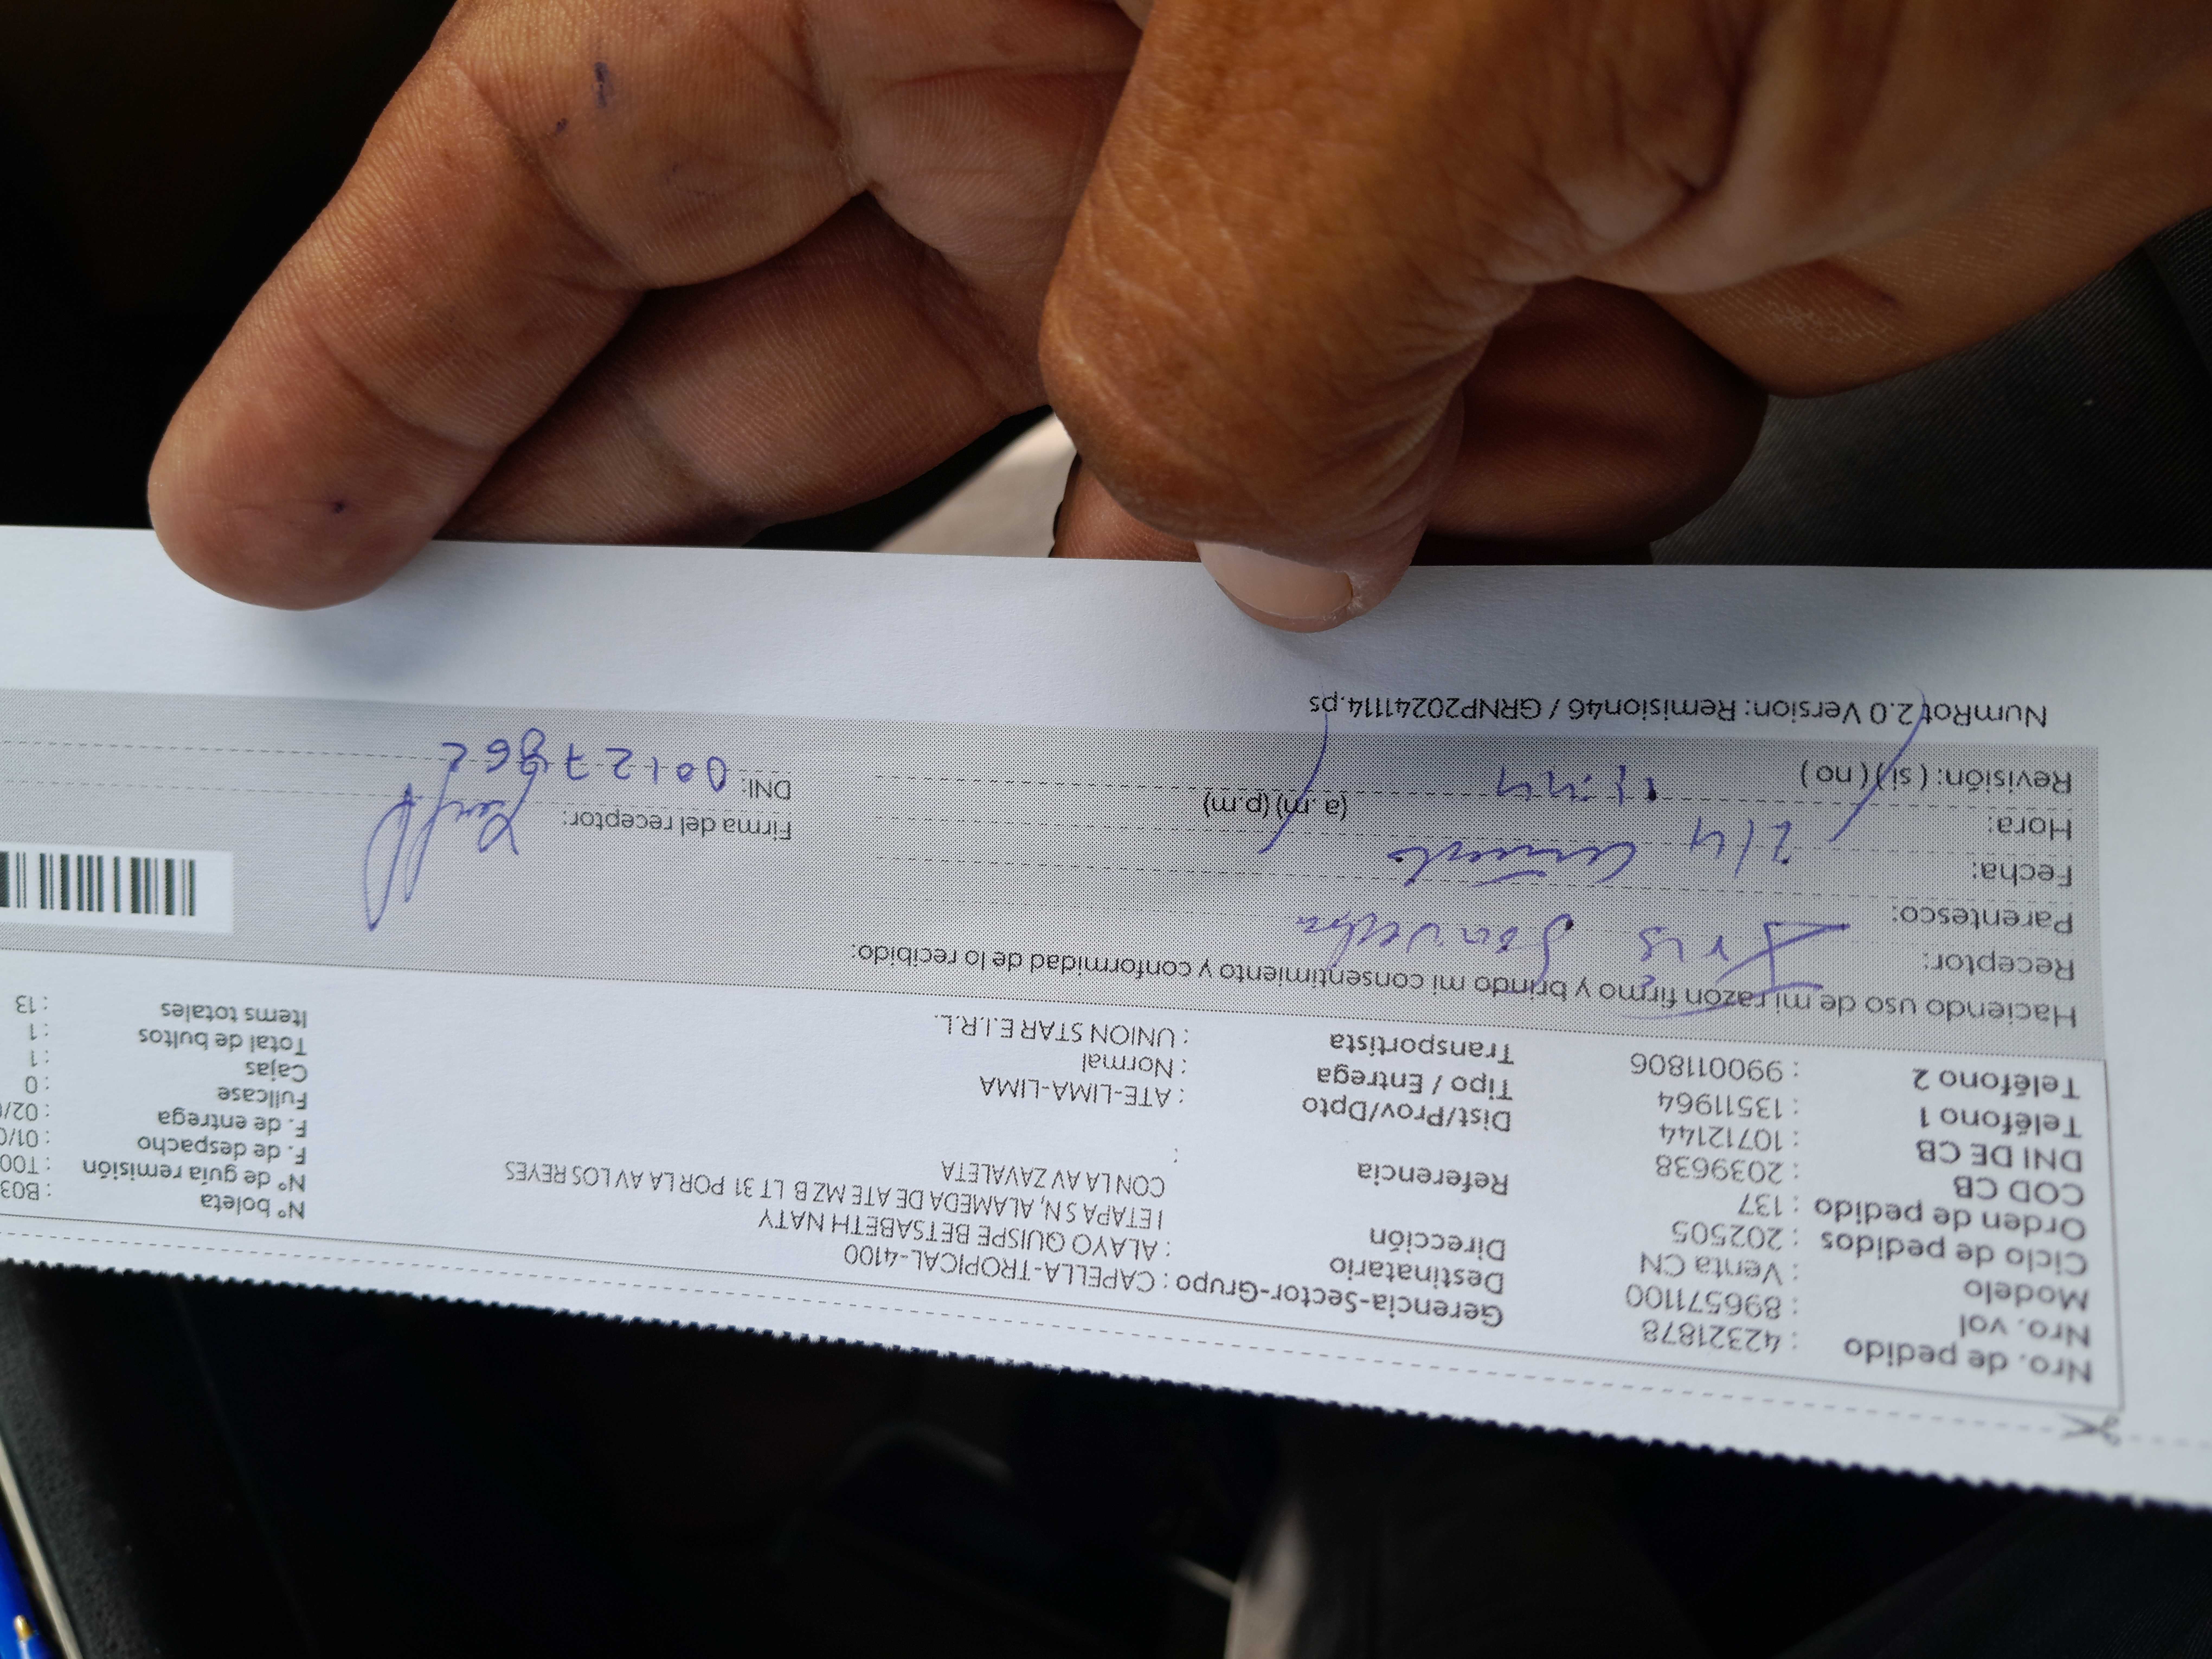 Nro. de pedido : 42321878
Nro. vol : 896571100
Modelo : Venta CN
Ciclo de pedidos : 202505
Orden de pedido : 137
COD CB : 2039638
DNI DE CB : 10712144
Teléfono 1 : 13511964
Teléfono 2 : 990011806
Gerencia-Sector-Grupo : CAPELLA-TROPICAL-4100
Destinatario : ALAYO QUISPE BETSABETH NATY
Dirección I ETAPA SN, ALAMEDA DE ATE MZ B LT 31 POR LA AV LOS REYES
CON LA AV ZAVALETA
Referencia :
Dist/Prov/Dpto : ATE-LIMA-LIMA
Tipo / Entrega : Normal
Transportista : UNION STAR E.I.R.L.
N° boleta : B03
N° de guía remisión : T00
F. de despacho : 01/0
F. de entrega : 02/0
Fullcase : 0
Cajas : 1
Total de bultos : 1
Items totales : 13
Haciendo uso de mi razón firmo y brindo mi consentimiento y conformidad de lo recibido:
Receptor:
Parentesco:
Fecha: 2/4
Hora: (a.m) (p.m)
Revisión: ( si) ( no )
Firma del receptor:
DNI:
NumRot 2.0 Version: Remision46 / GRNP20241114.ps